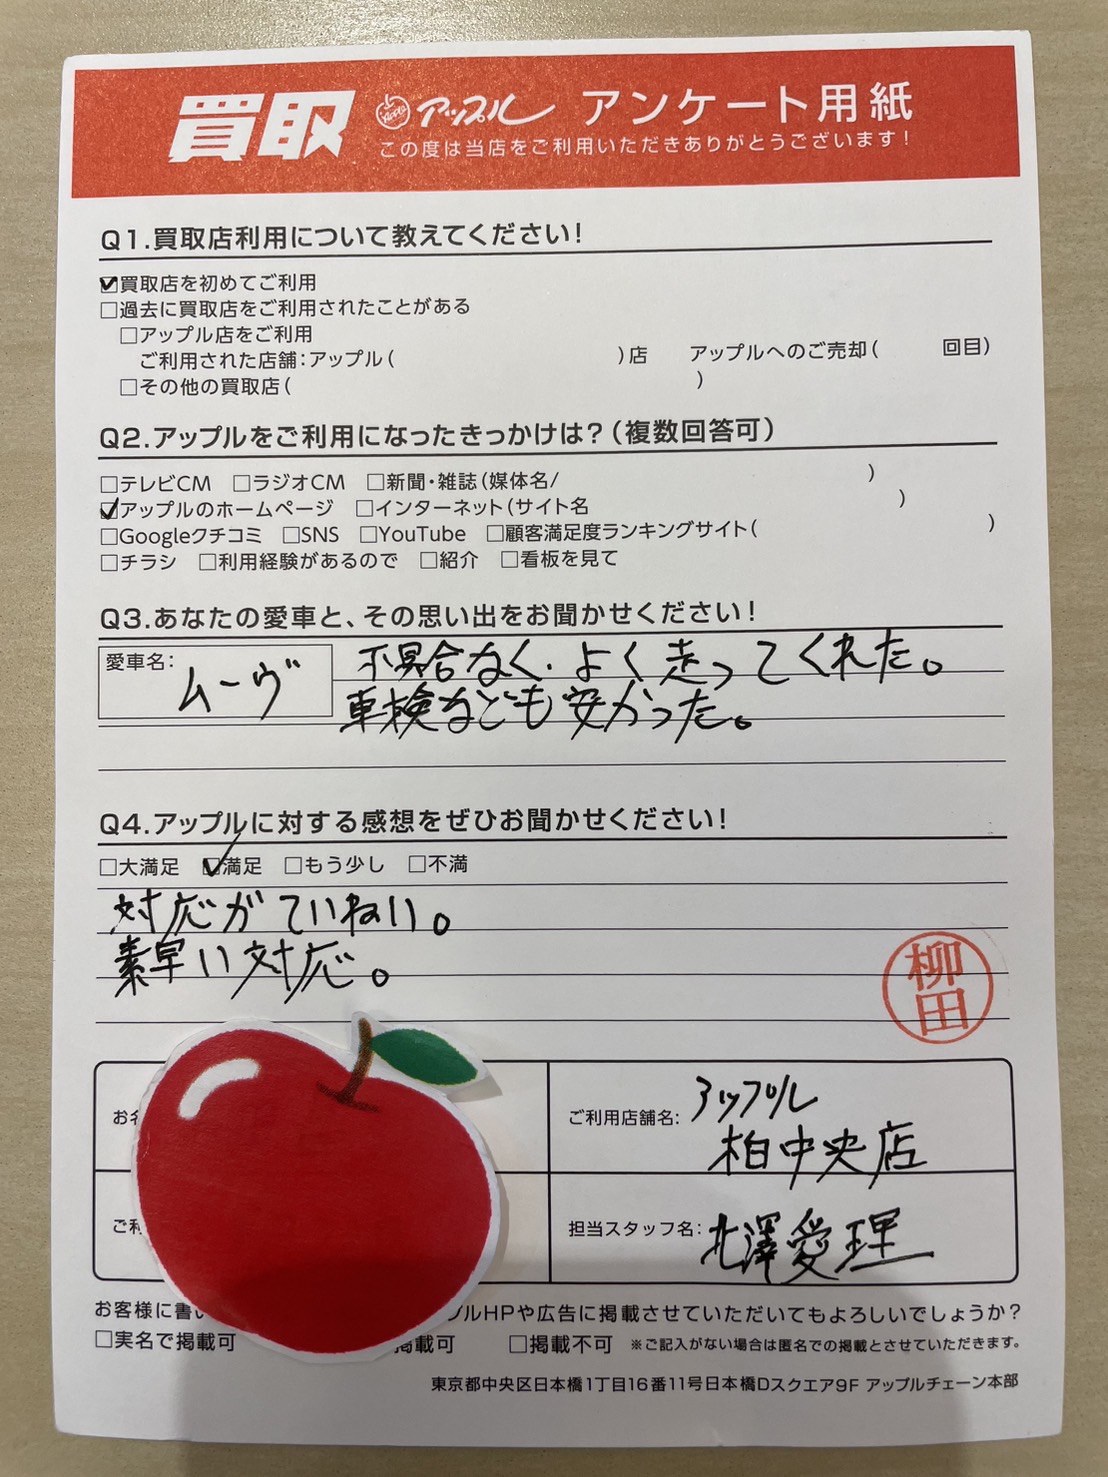 買取 アップル アンケート用紙
この度は当店をご利用いただきありがとうございます!
Q1.買取店利用について教えてください!
☑買取店を初めてご利用
□過去に買取店をご利用されたことがある
□アップル店をご利用
ご利用された店舗:アップル( )店 アップルへのご売却( 回目)
□その他の買取店( )
Q2.アップルをご利用になったきっかけは?(複数回答可)
□テレビCM □ラジオCM □新聞・雑誌(媒体名/ )
☑アップルのホームページ □インターネット(サイト名 )
□Googleクチコミ □SNS □YouTube □顧客満足度ランキングサイト( )
□チラシ □利用経験があるので □紹介 □看板を見て
Q3.あなたの愛車と、その思い出をお聞かせください!
愛車名: ムーヴ
不具合なく、よく走ってくれた。
車検なども安かった。
Q4.アップルに対する感想をぜひお聞かせください!
□大満足 ☑満足 □もう少し □不満
対応がていねい。
素早い対応。
柳田
お名
ご利用店舗名: アップル
柏中央店
ご利
担当スタッフ名: 北澤愛理
お客様に書い プルHPや広告に掲載させていただいてもよろしいでしょうか?
□実名で掲載可 掲載可 □掲載不可 ※ご記入がない場合は匿名での掲載とさせていただきます。
東京都中央区日本橋1丁目16番11号日本橋Dスクエア9F アップルチェーン本部